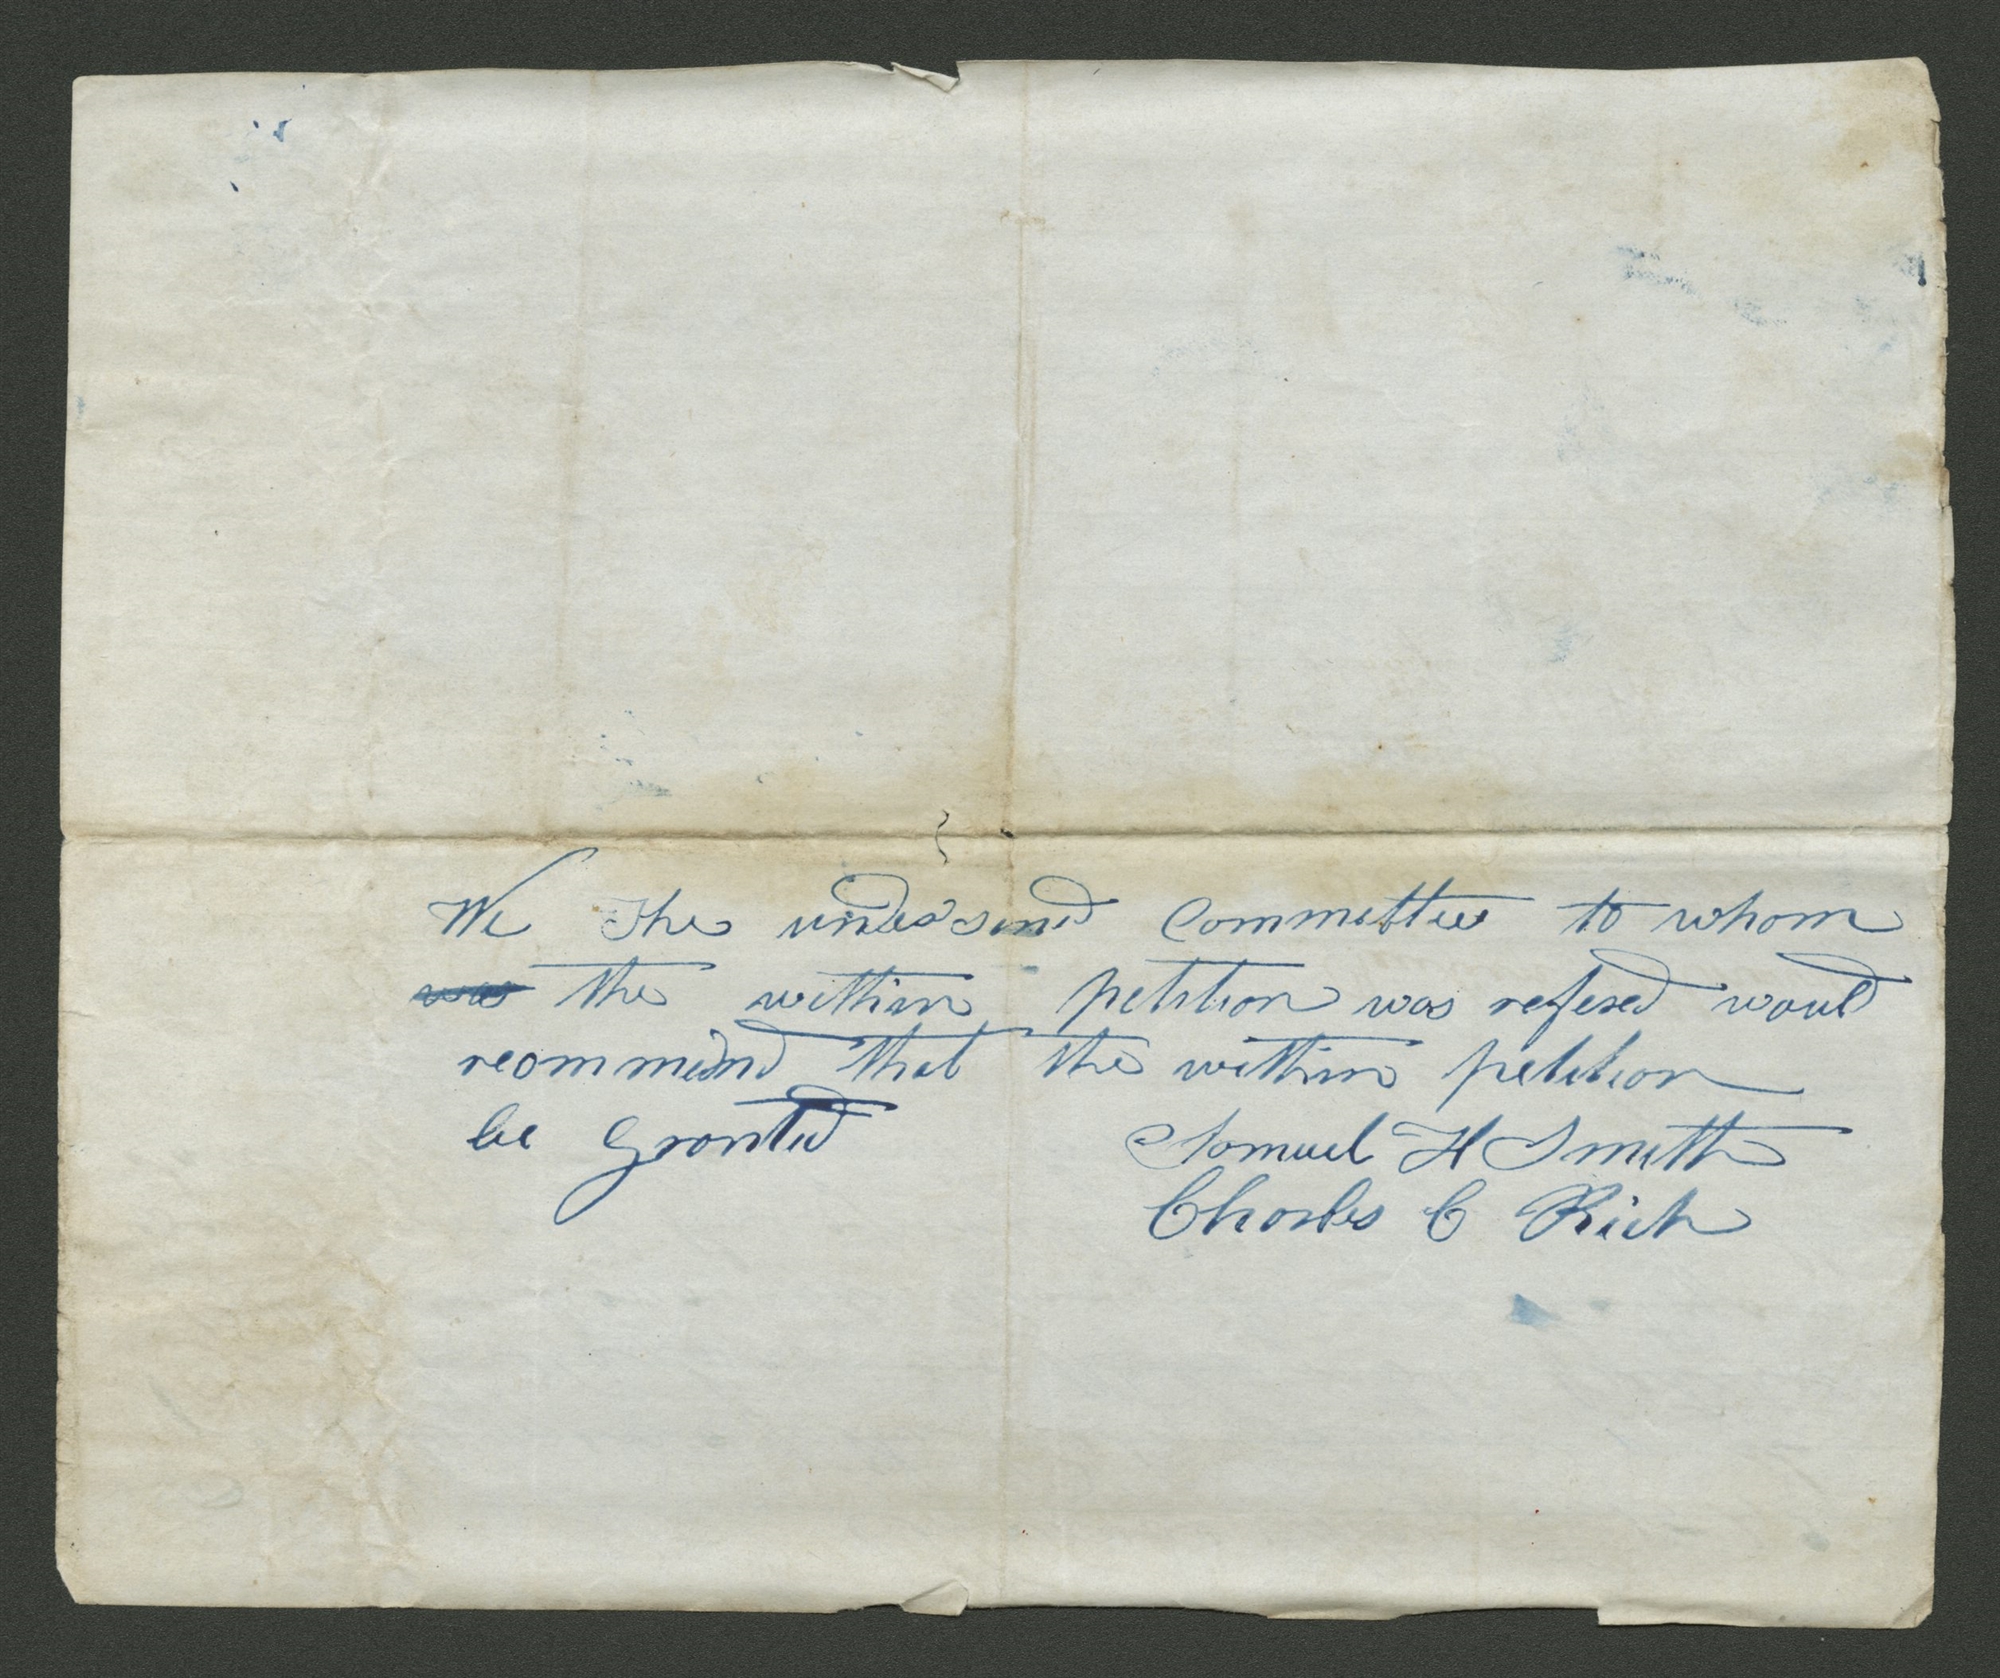 We The undersined Committee to whom
was the within petition was refered would
reommend that the within petition
be Granted
Samuel H Smith
Charles C Rich